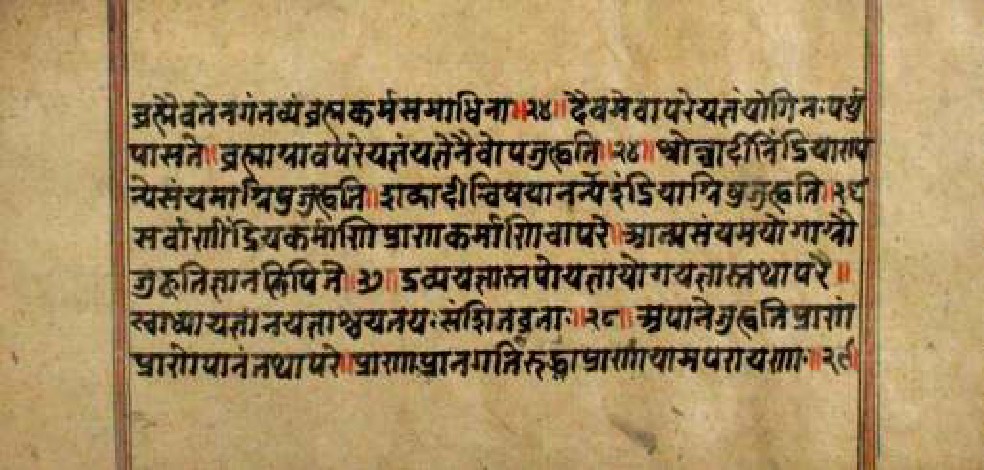 ब्रह्मैवतेनगंतव्यंब्रह्मकर्मसमाधिना॥२४॥दैवमेवापरेयज्ञंयोगिनःपर्यु
पासते॥ब्रह्माग्नावपरेयज्ञंयज्ञेनैवोपजुह्वति॥२५॥श्रोत्रादीनिंद्रियाण्य
न्येसंयमाग्निषुजुह्वति॥शब्दादीन्विषयानन्येइंद्रियाग्निषुजुह्वति॥२६
सर्वाणींद्रियकर्माणिप्राणकर्माणिचापरे॥आत्मसंयमयोगाग्नौ
जुह्वतिज्ञानदीपिते॥२७॥द्रव्ययज्ञास्तपोयज्ञायोगयज्ञास्तथापरे॥
स्वाध्यायज्ञानयज्ञाश्चयतयःसंशितव्रताः॥२८॥अपानेजुह्वतिप्राणं
प्राणेपानंतथापरे॥प्राणापानगतिरुद्ध्वाप्राणायामपरायणाः॥२९॥